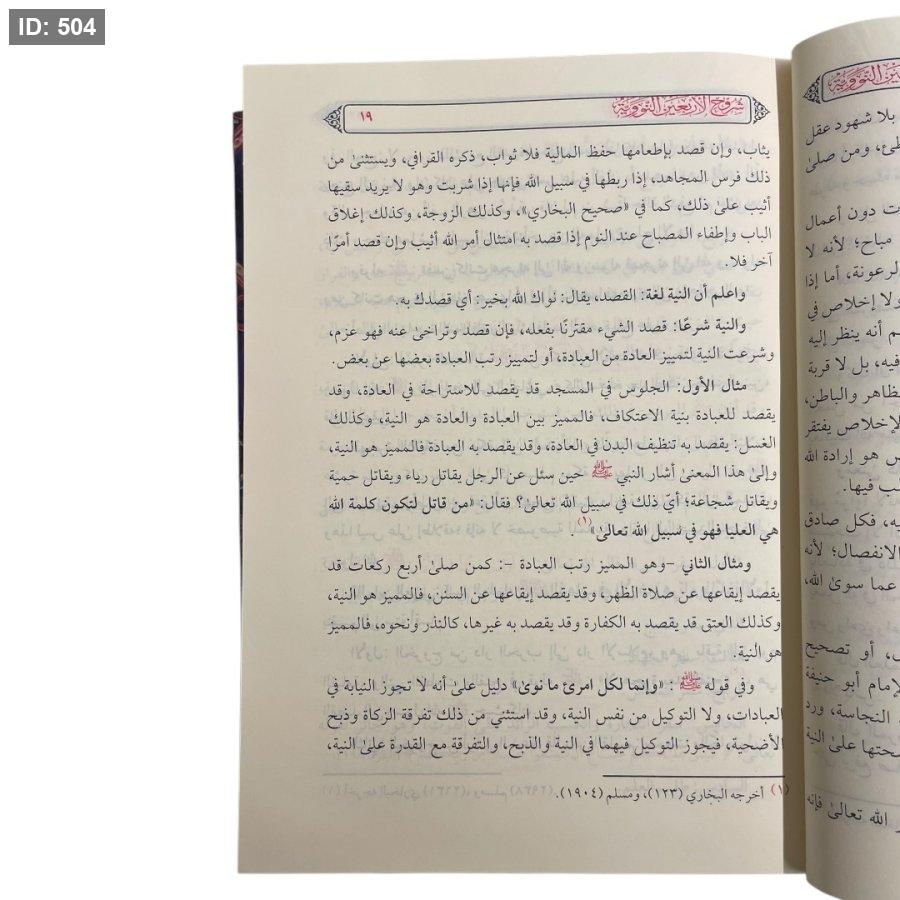 ID: 504
شروح الأربعين النووية
١٩
يثاب، وإن قصد بإطعامها حفظ المالية فلا ثواب، ذكره القرافي، ويستثنىٰ من
ذلك فرس المجاهد، إذا ربطها في سبيل الله فإنها إذا شربت وهو لا يريد سقيها
أثيب علىٰ ذلك، كما في «صحيح البخاري»، وكذلك الزوجة، وكذلك إغلاق
الباب وإطفاء المصباح عند النوم إذا قصد به امتثال أمر الله أثيب وإن قصد أمرًا
آخر فلا.
واعلم أن النية لغة: القصد، يقال: نواك الله بخير: أي قصدك به.
والنية شرعًا: قصد الشيء مقترنًا بفعله، فإن قصد وتراخىٰ عنه فهو عزم،
وشرعت النية لتمييز العادة من العبادة، أو لتمييز رتب العبادة بعضها عن بعض.
مثال الأول: الجلوس في المسجد قد يقصد للاستراحة في العادة، وقد
يقصد للعبادة بنية الاعتكاف، فالمميز بين العبادة والعادة هو النية، وكذلك
الغسل: يقصد به تنظيف البدن في العادة، وقد يقصد به العبادة فالمميز هو النية،
وإلىٰ هذا المعنىٰ أشار النبي ﷺ حين سئل عن الرجل يقاتل رياء ويقاتل حمية
ويقاتل شجاعة؛ أيّ ذلك في سبيل الله تعالىٰ؟ فقال: «من قاتل لتكون كلمة الله
هي العليا فهو في سبيل الله تعالىٰ»(١).
ومثال الثاني -وهو المميز رتب العبادة -: كمن صلىٰ أربع ركعات قد
يقصد إيقاعها عن صلاة الظهر، وقد يقصد إيقاعها عن السنن، فالمميز هو النية،
وكذلك العتق قد يقصد به الكفارة وقد يقصد به غيرها، كالنذر ونحوه، فالمميز
هو النية.
وفي قوله ﷺ: «وإنما لكل امرئ ما نوىٰ» دليل علىٰ أنه لا تجوز النيابة في
العبادات، ولا التوكيل من نفس النية، وقد استثني من ذلك تفرقة الزكاة وذبح
الأضحية، فيجوز التوكيل فيهما في النية والذبح، والتفرقة مع القدرة علىٰ النية،
(١) أخرجه البخاري (١٢٣)، ومسلم (١٩٠٤).
بلا شهود عقل
ومن صلىٰ
ت دون أعمال
مباح؛ لأنه لا
لرعونة، أما إذا
ولا إخلاص في
م أنه ينظر إليه
فيه، بل لا قربة
ظاهر والباطن،
لإخلاص يفتقر
س هو إرادة الله
ب فيها.
يه، فكل صادق
الانفصال؛ لأنه
عما سوىٰ الله،
أو تصحيح
لإمام أبو حنيفة
النجاسة، ورد
حتها علىٰ النية
الله تعالىٰ فإنه